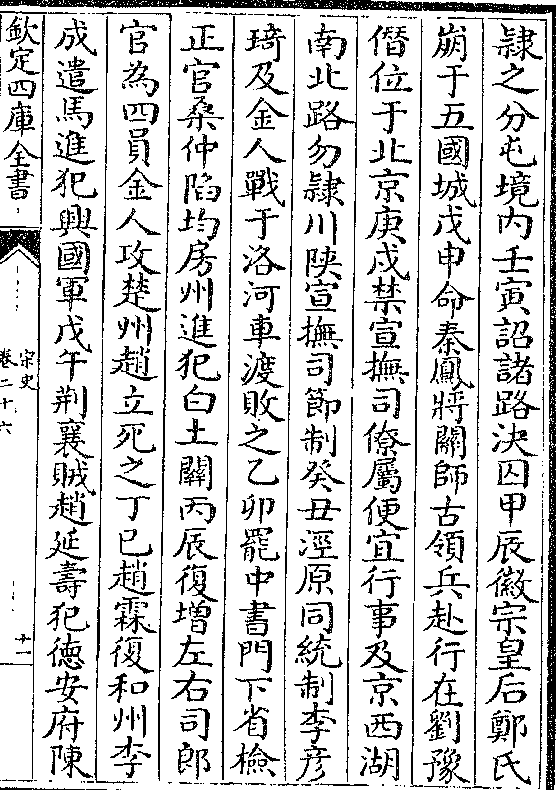 隸之分屯境内壬寅詔諸路決囚甲辰徽宗皇后鄭氏
崩于五國城戊申命秦鳳將關師古領兵赴行在劉豫
僭位于北京庚戌禁宣撫司僚屬便宜行事及京西湖
南北路勿隸川陝宣撫司節制癸丑涇原同統制李彦
琦及金人戰于洛河車渡敗之乙卯罷中書門下省檢
正官桑仲陷均房州進犯白土關丙辰復增左右司郎
官為四員金人攻楚州趙立死之丁巳趙霖復和州李
成遣馬進犯興國軍戊午荆襄賊趙延壽犯徳安府陳
欽定四庫全書
宋史
卷二十六
十一